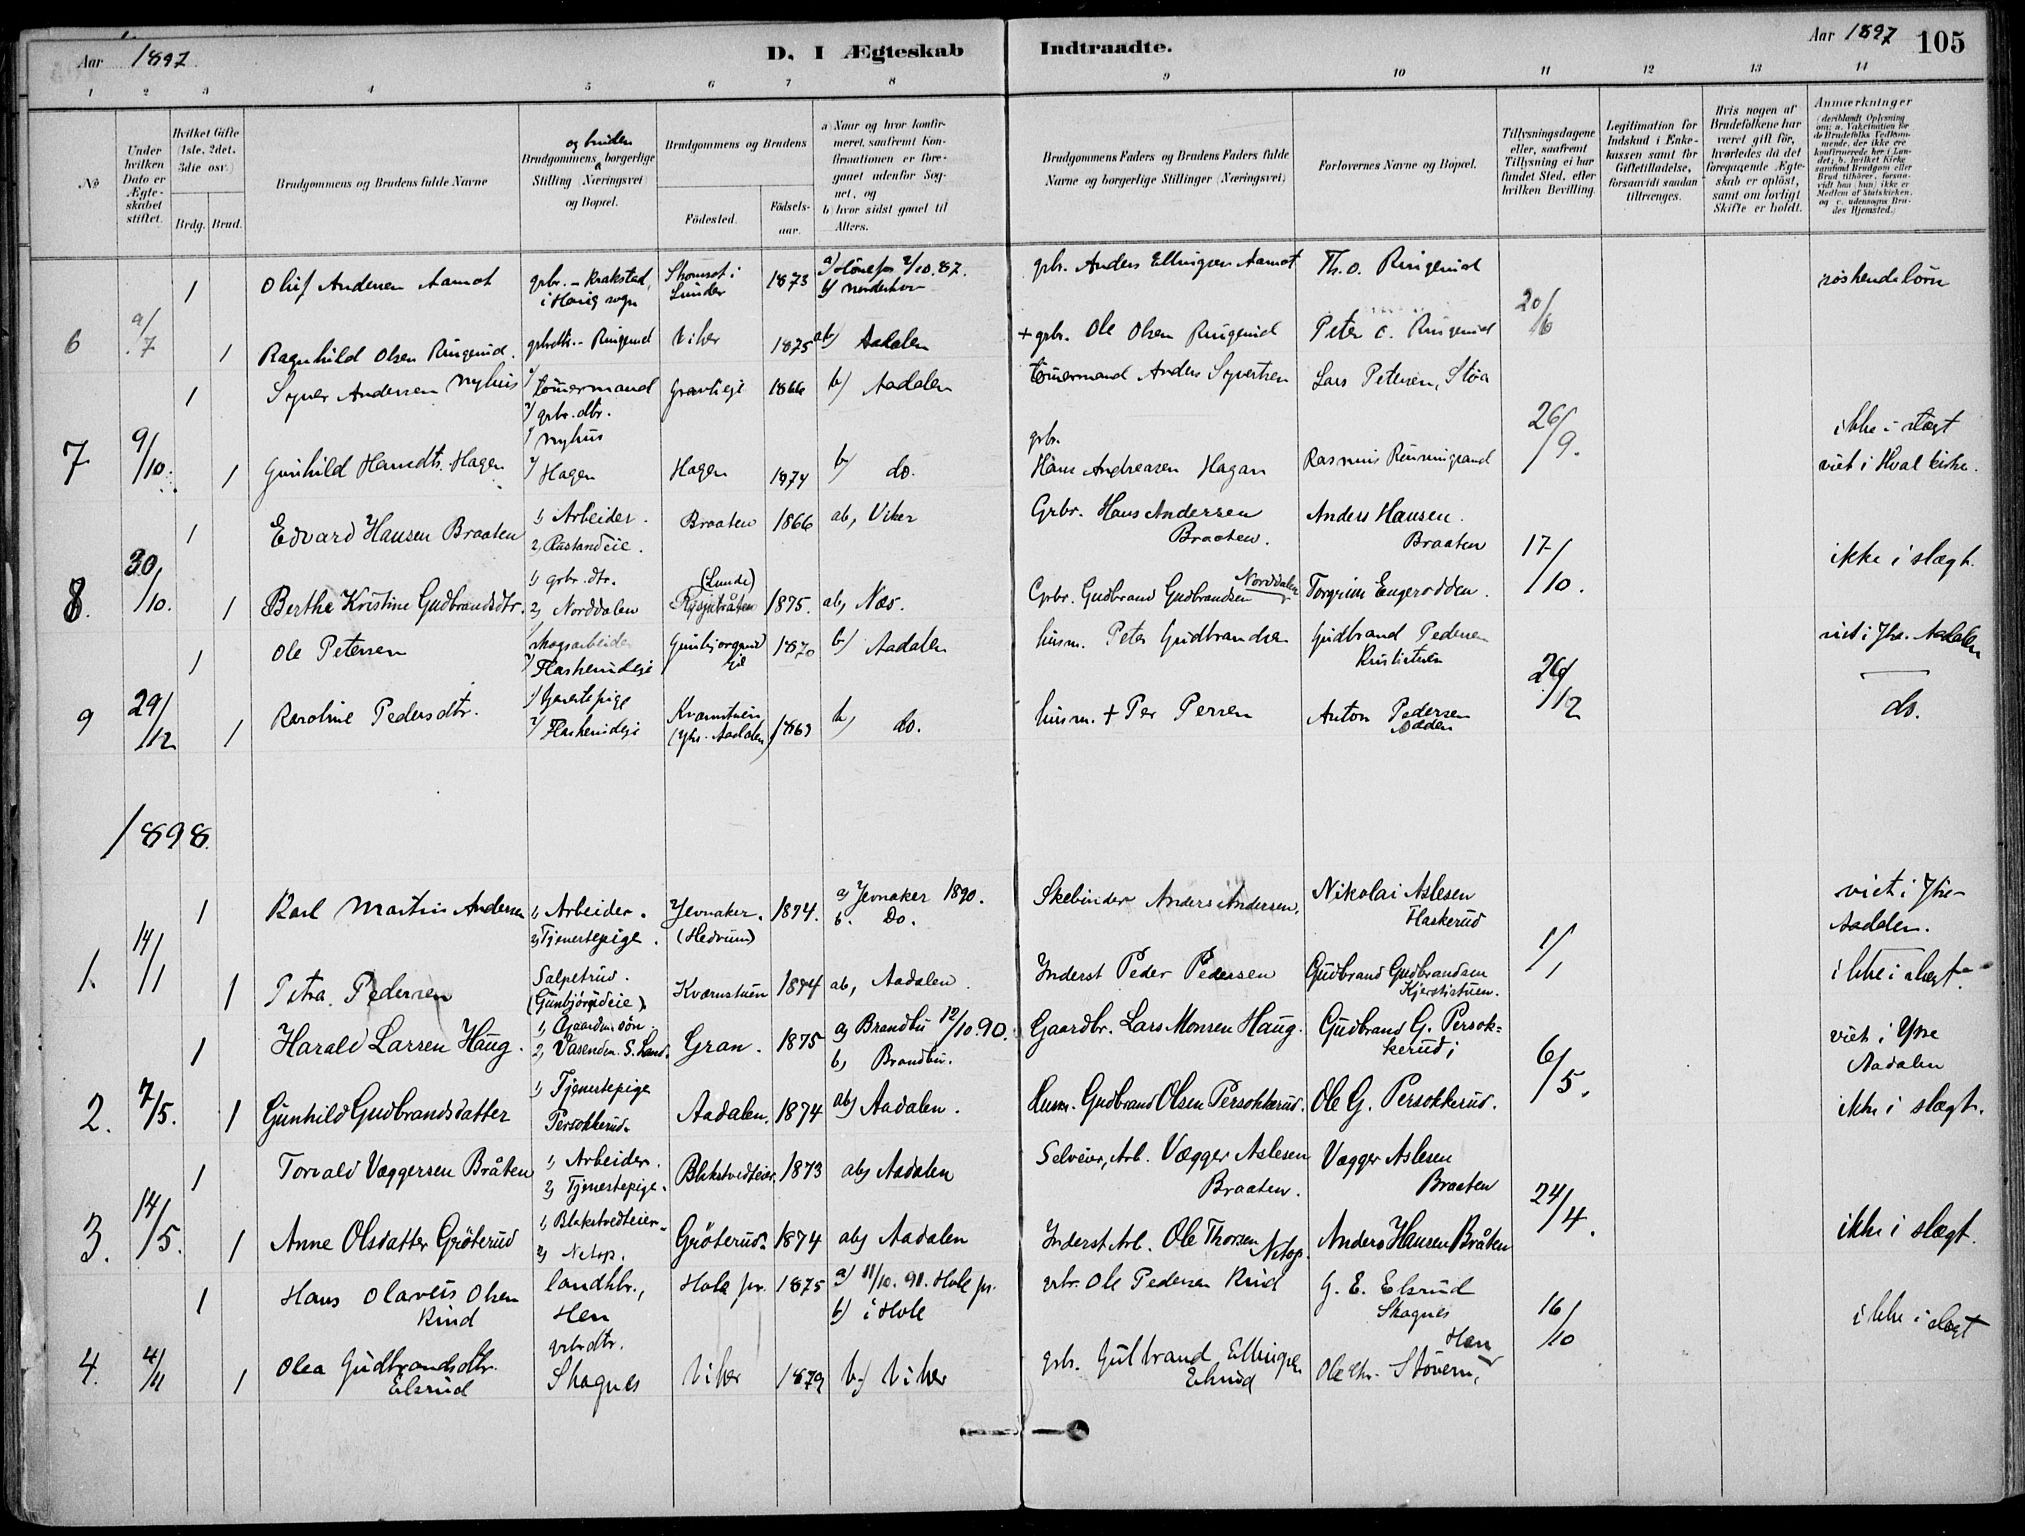 Aar 1897
D. I Ægteskab
Indtraadte.
Aar 1897
105
1 2 3 4 5 6 7 8 9 10 11 12 13 14
No
Under hvilken Dato er Ægteskabet stiftet.
Hvilket Gifte (1ste, 2det, 3die osv.)
Brdg. Brud.
Brudgommens og Brudens fulde Navne
og bruden
Brudgommens borgerlige Stilling (Næringsvei) og Bopæl.
Brudgommens og Brudens
Födested.
Födselsaar.
a) Naar og hvor konfirmeret, saafremt Konfirmationen er foregaaet udenfor Sognet, og
b) hvor sidst gaaet til Alters.
Brudgommens Faders og Brudens Faders fulde Navne og borgerlige Stillinger (Næringsvei)
Forlovernes Navne og Bopæl.
Tillysningsdagene eller, saafremt Tillysning ei har fundet Sted, efter hvilken Bevilling.
Legitimation for Indskud i Enkekassen samt for Giftetilladelse, forsaavidt saadan tiltrænges.
Hvis nogen af Brudefolkene har været gift för, hvorledes da det foregaaende Ægteskab er oplöst, samt om lovligt Skifte er holdt.
Anmærkninger
1 Oluf Andersen Aamot grbr. - Krakstad, i Haug sogn Lunder 1873 a) Hönefos 2/10.87. b) Norderhov grbr. Anders Ellingsen Aamot Th. O. Ringerud søskendebörn
6 9/7 1 Ragnhild Olsen Ringerud. grbrdtr. - Ringerud Viker 1875 ab) Aadalen + grbr. Ole Olsen Ringerud Peter O. Ringerud 20/6
1 Syver Andersen Nyhus 1) Tömmermand 2) grbr. dtr. 1866 b) Aadalen Tömmermand Anders Syvertsen Lars Petersen, Stöa
7 9/10. 1 Gunhild Hansdtr. Hagen 1) Nyhus 2) Hagen Hagen 1874 b) do. grbr. Hans Andreasen Hagan Rasmus 26/9. ikke i slægt viet i Hval kirke.
1 Edvard Hansen Braaten 1) Arbeider. 2) Rustandeie. Braaten 1866 ab, Viker Grbr. Hans Andersen Braaten. Anders Hansen. Braaten 17/10. ikke i slægt.
8. 30/10. 1 Berthe Kristine Gudbrandsdtr. 1) grbr. dtr. 2) Norddalen (Lunde) 1875. ab, Næs. Grbr. Gudbrand Gudbrandsen Norddalen Torgrim Engerodden.
1 Ole Petersen skogsarbeider 1870 b) Aadalen husm. Peter Gudbrandsen Gudbrand Pedersen viet i Ytr. Aadalen
9 29/12 1 Karoline Pedersdtr. 1) tjenestepige (Ytr. Aadalen) 1869 b) do. husm. + Per Persen Anton Pedersen Odden 26/12 do.
1898.
1 Karl Martin Andersen 1) Arbeider. 2) Tjenestepige. Jevnaker. (Hedrum) 1874. a) Jevnaker 1890. b. Do. Skebinder Anders Andersen. Nikolai Aslesen Flaskerud viet i Ytre Aadalen.
1. 14/1 1 Petra Pedersen Salpetrud. Kværnstuen 1874 ab, Aadalen. Inderst Peder Pedersen Gudbrand Gudbrandsen Kjerstistuen. 1/1 ikke i slægt.
1 Harald Larsen Haug. 1) Gaardm. sön 2) Vasenden. S. Land. Gran. 1875 a) Brandbu 12/10 90. b) Brandbu. Gaardbr. Lars Monsen Haug. Gudbrand G. Persokkerud; viet i Ytre Aadalen
2. 7/5. 1 Gunhild Gudbrandsdatter 1) Tjenestepige Persokkerud. Aadalen. 1874 ab, Aadalen. Husm. Gudbrand Olsen Persokkerud. Ole G. Persokkerud. 6/5. ikke i slægt.
1 Torvald Væggersen Bråten 1) Arbeider. 2) Tjenestepige. Blakstvedteier. 1873 ab, Aadalen Selveier, Arb. Vægger Aslesen Braaten. Vægger Aslesen Braaten
3. 14/5. 1 Anne Olsdatter Gröterud 1) Blakstvedteier. 2) Netop. Gröterud. 1874 ab, Aadalen Inderst Arb. Ole Thorsen Netop. Anders Hansen Bråten 24/4. ikke i slægt.
1 Hans Olaveus Olsen Rud landhbr., Hen Hole pr. 1875 a) 11/10. 91. Hole pr. b) i Hole grbr. Ole Pedersen Rud G. E. Elsrud Skagnes 16/10 ikke i slægt
4. 4/11 1 Olea Gudbrandsdtr. Elsrud grbrdtr. Skagnes Viker 1879 b) Viker grb. Gulbrand Ellingsen Elsrud Ole Chr. Stövern, Hen